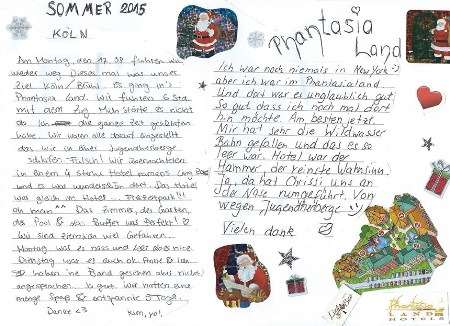 SOMMER 2015
KÖLN
Am Montag, den 17.08 fuhren wir
wieder weg. Dieses mal war unser
Ziel Köln/Brühl. Es ging in's
Phantasia Land. Wir fuhren 6 Std.
mit dem Zug. Man störte es nicht
da ich die ganze Zeit geschlafen
habe. Wir waren alle darauf eingestellt
das wir in einer Jugendherberge
schlafen - Falsch! Wir übernachteten
in einem 4 Sterne Hotel namens Ling Bao
und es war wunderschön dort. Das Hotel
war gleich im Hotel... Freizeitpark!!!
Oh man ^^ Das Zimmer, der Garten,
der Pool & das Buffet war Perfekt!
Wir sind ziemlich viel Gefahren...
Montag war es nass und leer das nice.
Dienstag war es auch ok. Franzi & Lea
haben 'ne Band gesehen aber nicht
angesprochen. Is gut. Wir hatten eine
menge Spaß & entspannte 3 Tage.
Danke <3
Kim, yo!
Phantasia
Land
Ich war noch niemals in New York :)
aber ich war im Phantasialand
Und dort war es unglaublich gut
So gut dass ich noch mal dort
hin möchte. Am besten jetzt...
Mir hat sehr die Wildwasser
Bahn gefallen und das es so
leer war. Hotel war der
Hammer, der reinste Wahnsinn.
Ja, da hat Chrissi uns an
der Nase rumgeführt. Von
wegen Jugendherberge
Vielen dank
Ling Bao
Phantasia
LAND
HOTELS